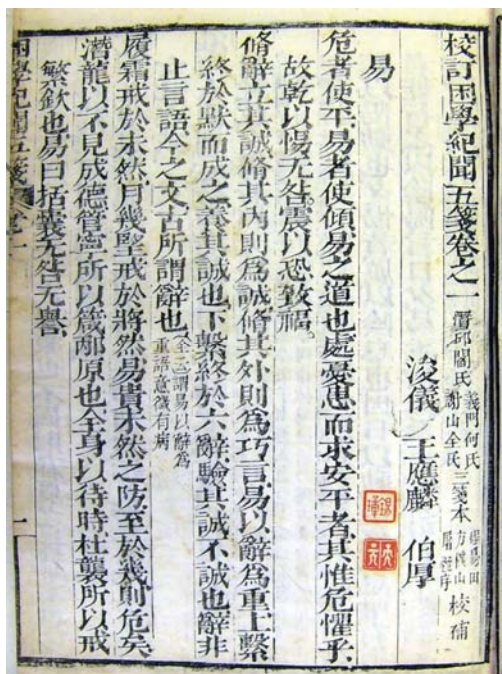 校訂困學紀聞五箋卷之一 潛邱閻氏 義門何氏 謝山全氏 三箋本 程易田 方樸山 屠繼序 校補
浚儀 王應麟 伯厚
易
危者使平易者使傾易之道也處憂患而求安平者其惟危懼乎
故乾以惕无咎震以恐致福
脩辭立其誠脩其內則爲誠脩其外則爲巧言易以辭爲重上繫
終於默而成之養其誠也下繫終於六辭驗其誠不誠也辭非
止言語今之文古所謂辭也 全云謂易以辭爲重語意微有病
履霜戒於未然月幾望戒於將然易貴未然之防至於幾則危矣
潛龍以不見成德管寧所以箴邴原也全身以待時杜襲所以戒
繁欽也易曰括囊无咎无譽
困學紀聞五箋 卷一 一